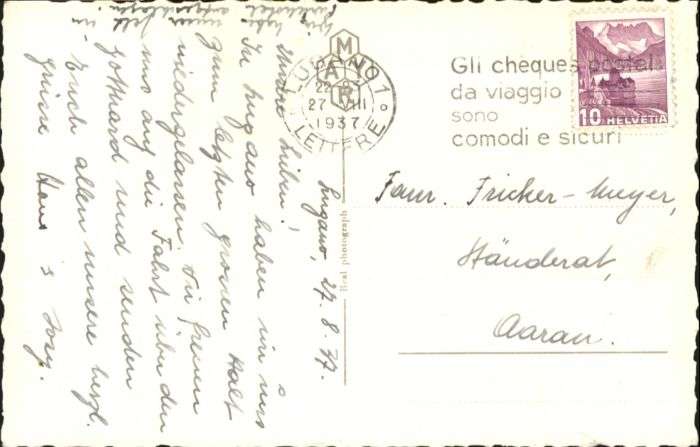 Lugano, 27. 8. 37.
Meine Lieben!
In Lugano haben wir uns
zum letzten grossen Halt
niedergelassen. Wir freuen
uns auf die Fahrt über den
Gotthard und senden
Euch allen unsere herzl.
Grüsse Hans & Rosy.
LUGANO 1
LETTERE
1937
Gli chèques postali
da viaggio
sono
comodi e sicuri
10 HELVETIA
Real photograph
Fam. Fricker-Meyer,
Ständerat,
Aarau.